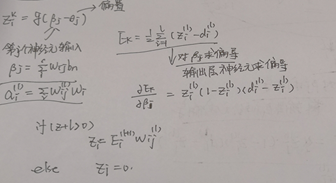 z_i^k = g(β_j - θ_j) → 偏置
第j个神经元输入
β_j = Σ w_{rj} b_n
a_i^{(l)} = Σ w_{ij}^{(l)} w_i
E_k = 1/2 Σ_{i=1} (z_i^{(l)} - d_i^{(l)})
对β_j求偏导
输出层神经元求偏导
∂E_k/∂β_j = z_i^{(l)} (1 - z_i^{(l)}) (d_i^{(l)} - z_i^{(l)})
if (z + l > 0)
z_j = E_i^{(l+1)} w_{ij}^{(l)}
else z_j = 0.